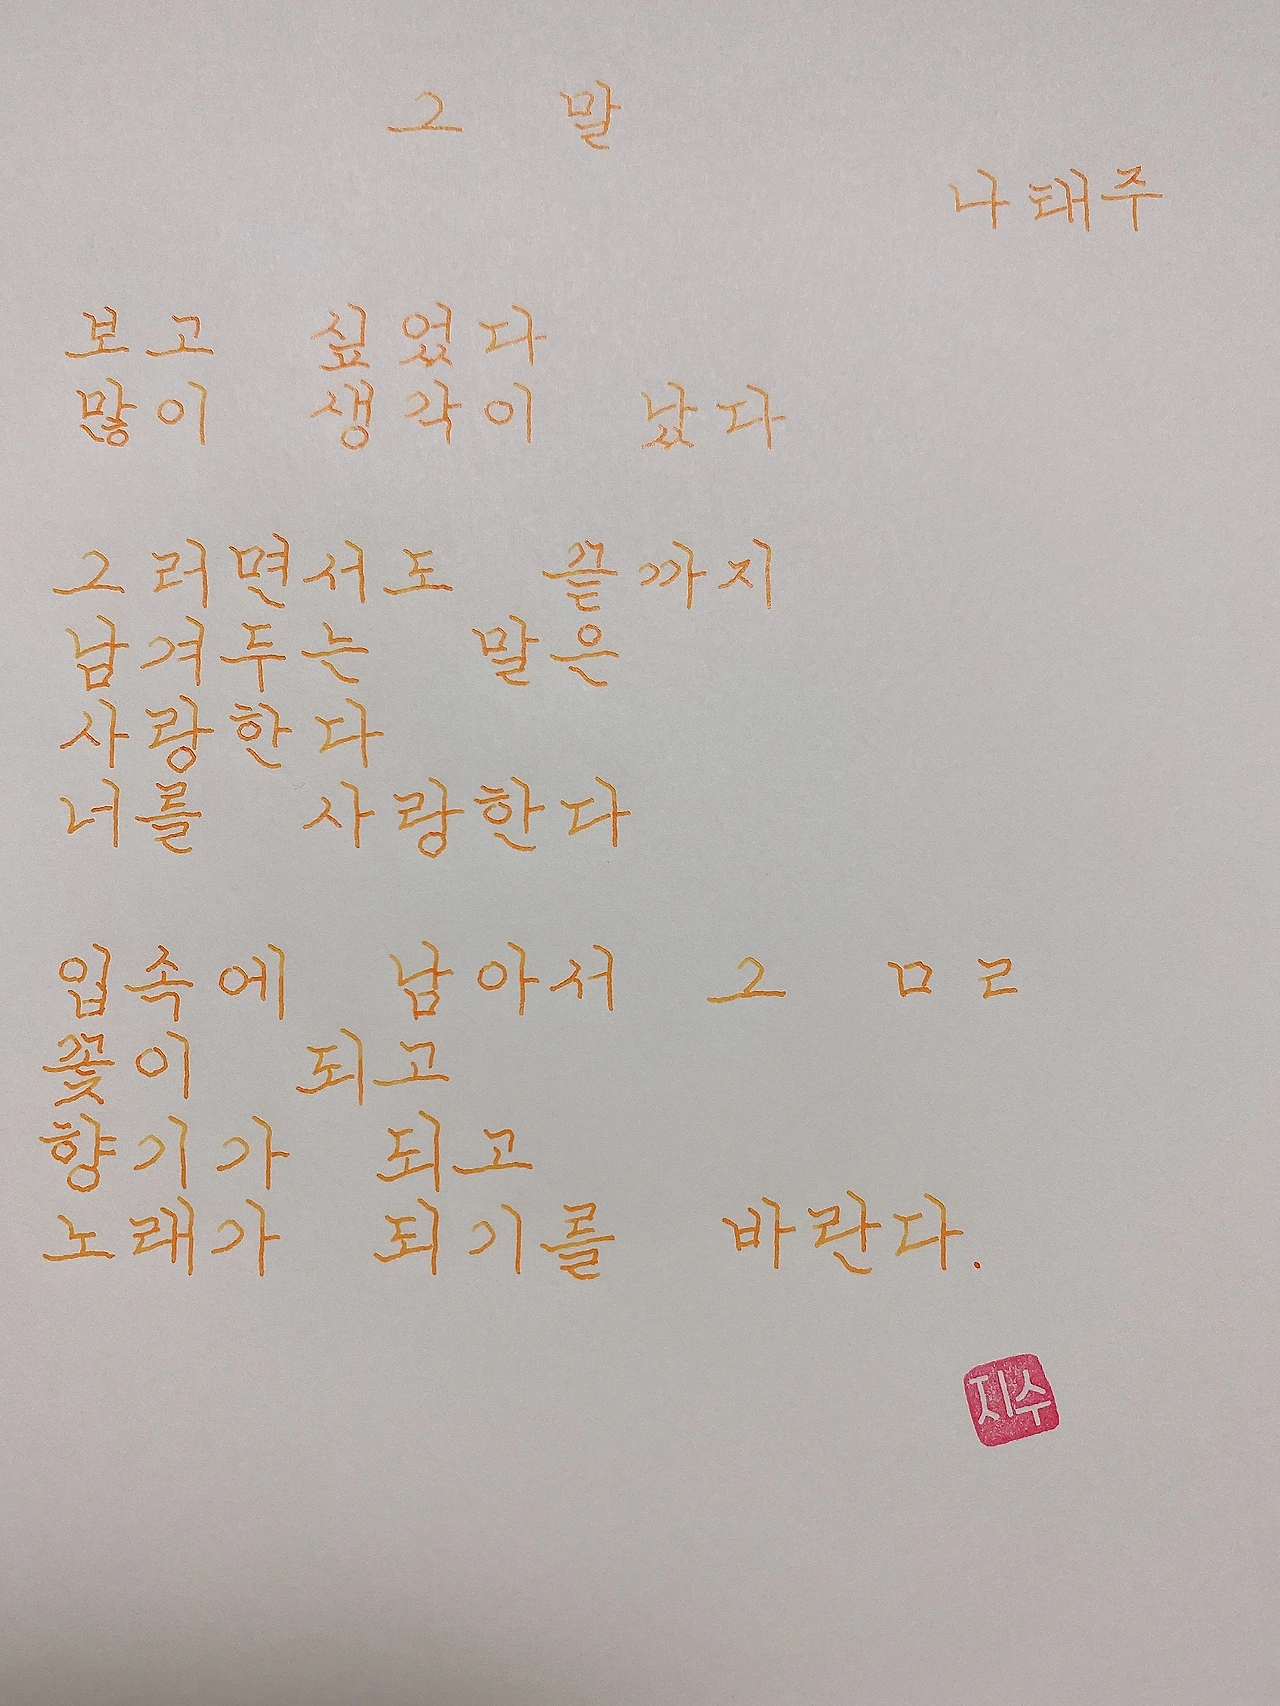 그 말
나태주
보고 싶었다
많이 생각이 났다
그러면서도 끝까지
남겨두는 말은
사랑한다
너를 사랑한다
입속에 남아서 그 ㅁㄹ
꽃이 되고
향기가 되고
노래가 되기를 바란다.
지수